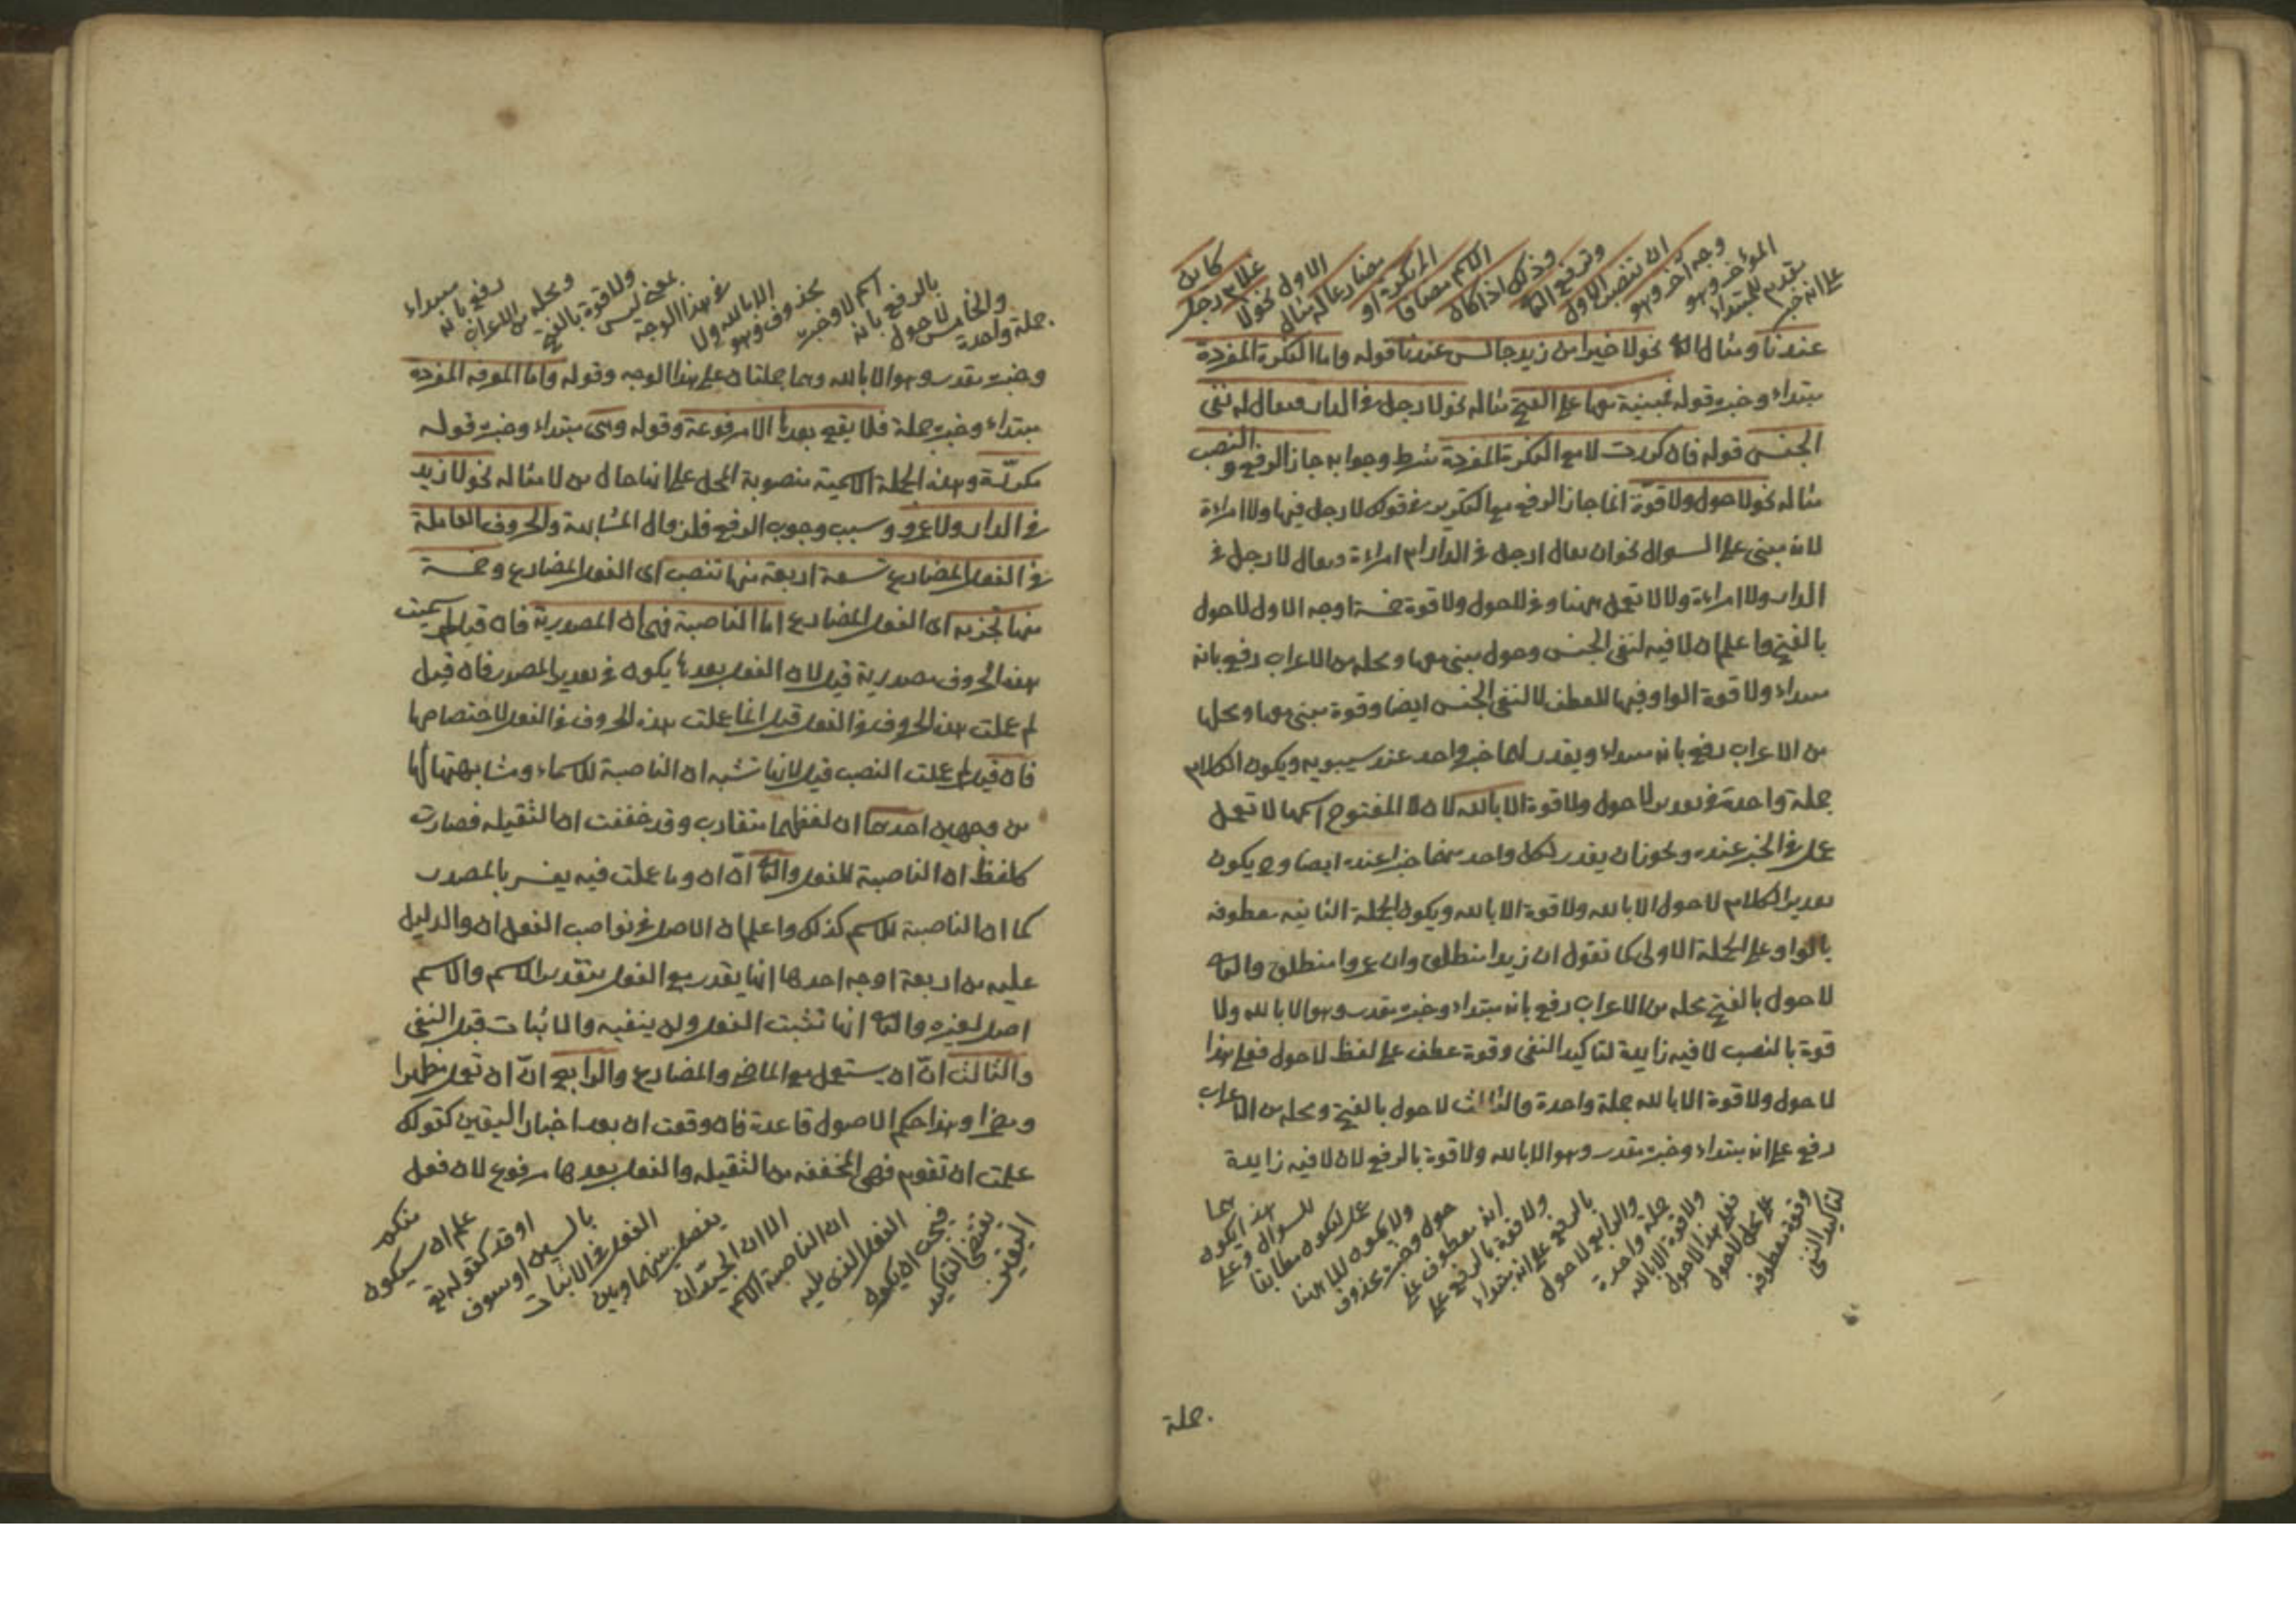 على انه خبر
مقدم للمبتداء
المؤخر وهو
وجه آخر وهو
ان تنصب الاول
وترفع الثانى
وذلك اذا كان
الاسم مضافا
الى نكرة او
مضارعا له مثال
الاول نحو لا
غلام رجل
كاين
عندنا ومثال الثانى نحو لا خيرا من زيد جالس عندنا قوله واما النكرة المفردة
مبتداء وخبره قوله فمبنية معها على الفتح مثاله نحو لا رجل فى الدار ويقال له نفى
الجنس قوله فان كررت لا مع النكرة المفردة شرط وجوابه جاز الرفع والنصب
مثاله نحو لا حول ولا قوة انما جاز الرفع مع التكرير فى قولك لا رجل فيها ولا امراءة
لانه مبنى على السوال نحو ان يقال ارجل فى الدار ام امراءة ويقال لا رجل فى
الدار ولا امراءة ولا لا تعمل ههنا وفى لا حول ولا قوة خمسة اوجه الاول لا حول
بالفتح واعلم ان لا فيه لنفى الجنس وحول مبنى معها ومحله من الاعراب رفع بانه
مبتداء ولا قوة الواو فيها للعطف لا لنفى الجنس ايضا وقوة مبنى معها ومحلها
من الاعراب رفع بانه مبتداء ويقدر لهما خبر واحد عند سيبويه ويكون الكلام
جملة واحدة فى تقدير لا حول ولا قوة الا بالله لان لا المفتوح اسمها لا تعمل
عمل فى الخبر عنده ويجوز ان يقدر لكل واحد منهما خبرا عنده ايضا وح يكون
تقدير الكلام لا حول الا بالله ولا قوة الا بالله ويكون الجملة الثانيه معطوفه
بالواو على الجملة الاولى كما تقول ان زيدا منطلق وان عمروا منطلق والثانى
لا حول بالفتح محله من الاعراب رفع بانه مبتداء وخبره مقدر وهو الا بالله ولا
قوة بالنصب لا فيه زايدة لتاكيد النفى وقوة عطف على لفظ لا حول فعلى هذا
لا حول ولا قوة الا بالله جملة واحدة والثالث لا حول بالفتح ومحله من الاعراب
رفع على انه مبتداء وخبره مقدر وهو الا بالله ولا قوة بالرفع لان لا فيه زايدة
لتاكيد النفى
وقوة معطوفه
على محل لا حول
فعلى هذا لا حول
ولا قوة الا بالله
جملة واحدة
والرابع لا حول
بالرفع على انه مبتداء
ولا قوة بالرفع على
انه معطوف على
حول وخبره محذوف
ولا يكون للا ههنا
عمل ليكون مطابقا
للسوال وعلى
هذا يكون
جملة
جملة واحدة
والخامس لا حول
بالرفع بانه
اسم لا وخبره
محذوف وهو
الا بالله ولا
فى هذا الوجه
بمعنى ليس
ولا قوة بالفتح
ومحله من الاعراب
رفع بانه
مبتداء
وخبره مقدر وهو الا بالله وهما جملتان على هذا الوجه وقوله واما المعرفه المفرده
مبتداء وخبره جملة فلا يقع بعدها الا مرفوعة وقوله وهى مبتداء وخبره قوله
مكررة وهذه الجملة الاسمية منصوبة المحل على انها حال من لا مثاله نحو لا زيد
فى الدار ولا عمرو وسبب وجوب الرفع فلزوال المشابهة والحروف العاملة
فى الفعل المضارع تسعة اربعة منها تنصب اى الفعل المضارع وخمسة
منها تجزمه اى الفعل المضارع اما الناصبة فهى ان المصدرية فان قيل لم سميت
هذه الحروف مصدرية قيل لان الفعل بعدها يكون فى تقدير المصدر فان قيل
لم عملت هذه الحروف فى الفعل قيل انما عملت هذه الحروف فى الفعل لاختصاصها
فان قيل لم عملت النصب قيل لانها تشبه ان الناصبة للاسماء ومشابهتها لها
من وجهين احدهما ان لفظهما متقارب وقد خففت ان الثقيله فصارت
كلفظ ان الناصبة للفعل والثانى ان ان وما عملت فيه يفسر بالمصدر
كما ان الناصبة للاسم كذلك واعلم ان الاصل فى نواصب الفعل ان والدليل
عليه من اربعة اوجه احدها انها يقدر مع الفعل بتقدير الاسم والاسم
اصل لغيره والثانى انها تثبت الفعل ولن ينفيه والاثبات قبل النفى
والثالث ان ان يستعمل مع الماضى والمضارع والرابع ان ان تعمل مظهرا
ومضمرا وهذا حكم الاصول قاعدة فان وقعت ان بعد اخبار اليقين كقولك
علمت ان تقوم فهى المخففه من الثقيله والفعل بعدها مرفوع لان فعل
اليقين
يقتضى التاكيد
فيجب ان يكون
الفعل الذى يليه
ان الناصبة الاسم
الا ان الجيد ان
يفصل بينهما وبين
الفعل فى الاثبات
بالسين او سوف
او قد كقوله تع
علم ان سيكون
منكم